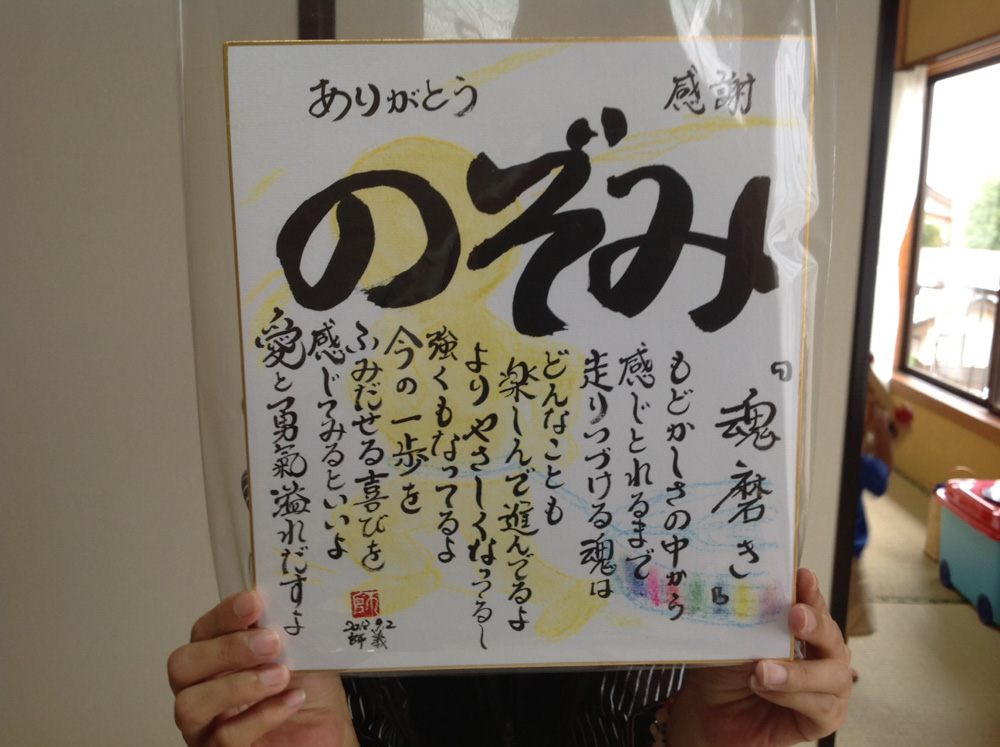 感謝
ありがとう
のぞみ
「魂磨き」
もどかしさの中から
感じとれるまで
走りつづける魂は
どんなことも
楽しんで進んでるよ
よりやさしくなってるし
強くもなってるよ
今の一歩を
ふみだせる喜びを
感じてみるといいよ
愛と勇氣溢れだすよ